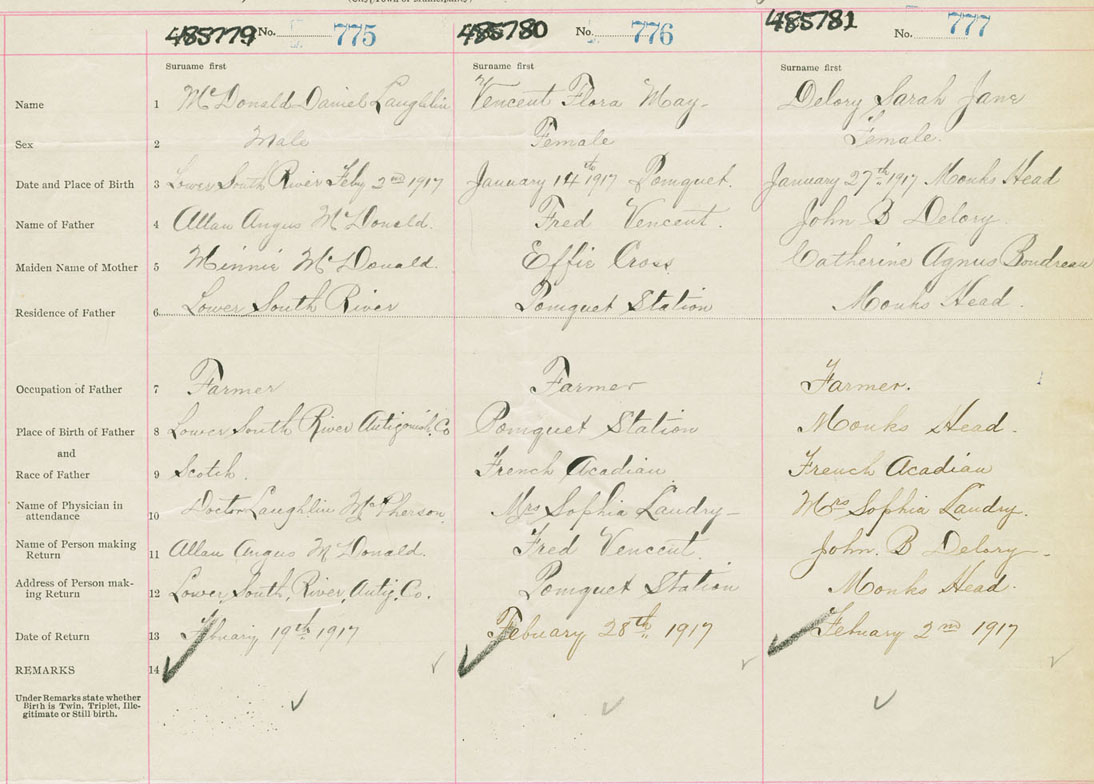 485779 No. 775 485780 No. 776 485781 No. 777
Surname first Surname first Surname first
Name 1 McDonald Daniel Laughlin Vencent Flora May- Delory Sarah Jane
Sex 2 Male Female Female.
Date and Place of Birth 3 Lower South River Feby 2nd 1917 January 14th 1917 Pomquet. January 27th 1917 Monks Head
Name of Father 4 Allan Angus McDonald. Fred Vencent. John B Delory.
Maiden Name of Mother 5 Minnie McDonald. Effie Cross Catherine Agnus Boudreau
Residence of Father 6 Lower South River Pomquet Station Monks Head.
Occupation of Father 7 Farmer Farmer Farmer.
Place of Birth of Father 8 Lower South River Antigonish Co Pomquet Station Monks Head.
and
Race of Father 9 Scotch. French Acadian French Acadian
Name of Physician in
attendance 10 Doctor Laughlin McPherson Mrs Sophia Landry- Mrs Sophia Landry.
Name of Person making
Return 11 Allan Angus McDonald. Fred Vencent. John. B Delory-.
Address of Person mak-
ing Return 12 Lower South River Antig. Co. Pomquet Station Monks Head.
Date of Return 13 Febuary 19th 1917 Febuary 28th 1917 Febuary 2nd 1917
REMARKS 14
Under Remarks state whether
Birth is Twin, Triplet, Ille-
gitimate or Still birth.